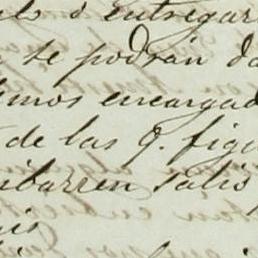 ó entregar
se podran da
mos encargad
de las q. figu
ibarren satis